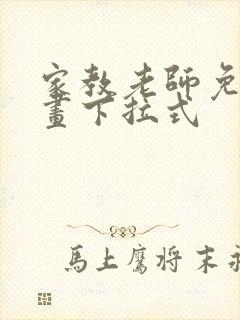 家教老師免
畫下拉式
馬上鷹将末